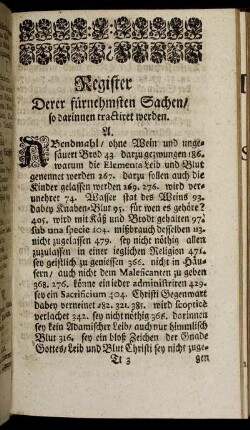 Register
Derer fürnehmsten Sachen/
so darinnen tractiret werden.
A.
ABendmahl/ ohne Wein und unge-
säuert Brod 43. darzu gezwungen 186.
warumb die Elementa Leib und Blut
genennet werden 267. darzu sollen auch die
Kinder gelassen werden 269. 276. wird ver-
unehret 74. Wasser stat des Weins 93.
dabey Knaben-Blut 95. für wen es gehöre?
405. wird mit Käß und Brodt gehalten 97.
sub una specie 104. mißbrauch desselben
nicht zugelassen 479. sey nicht nöthig allen
zusammen in einer jeglichen Religion 471.
sey geistlich zu geniessen 366. nicht in Häu-
sern/ auch nicht dem Maleficanten zu geben
368. 276. könne ein ieder administriren 429.
sey ein Sacrificium 404. Christi Gegenwart
dabey verneinet 282. 321. 381. wird scopticè
verlachet 342. sey nicht nöthig 366. darinnen
sey kein Adamischer Leib/ auch nur himmlisch
Blut 316. sey ein bloß Zeichen der Gnade
Gottes/ Leib und Blut Christi sey nicht zuge-
Tt 3 gen